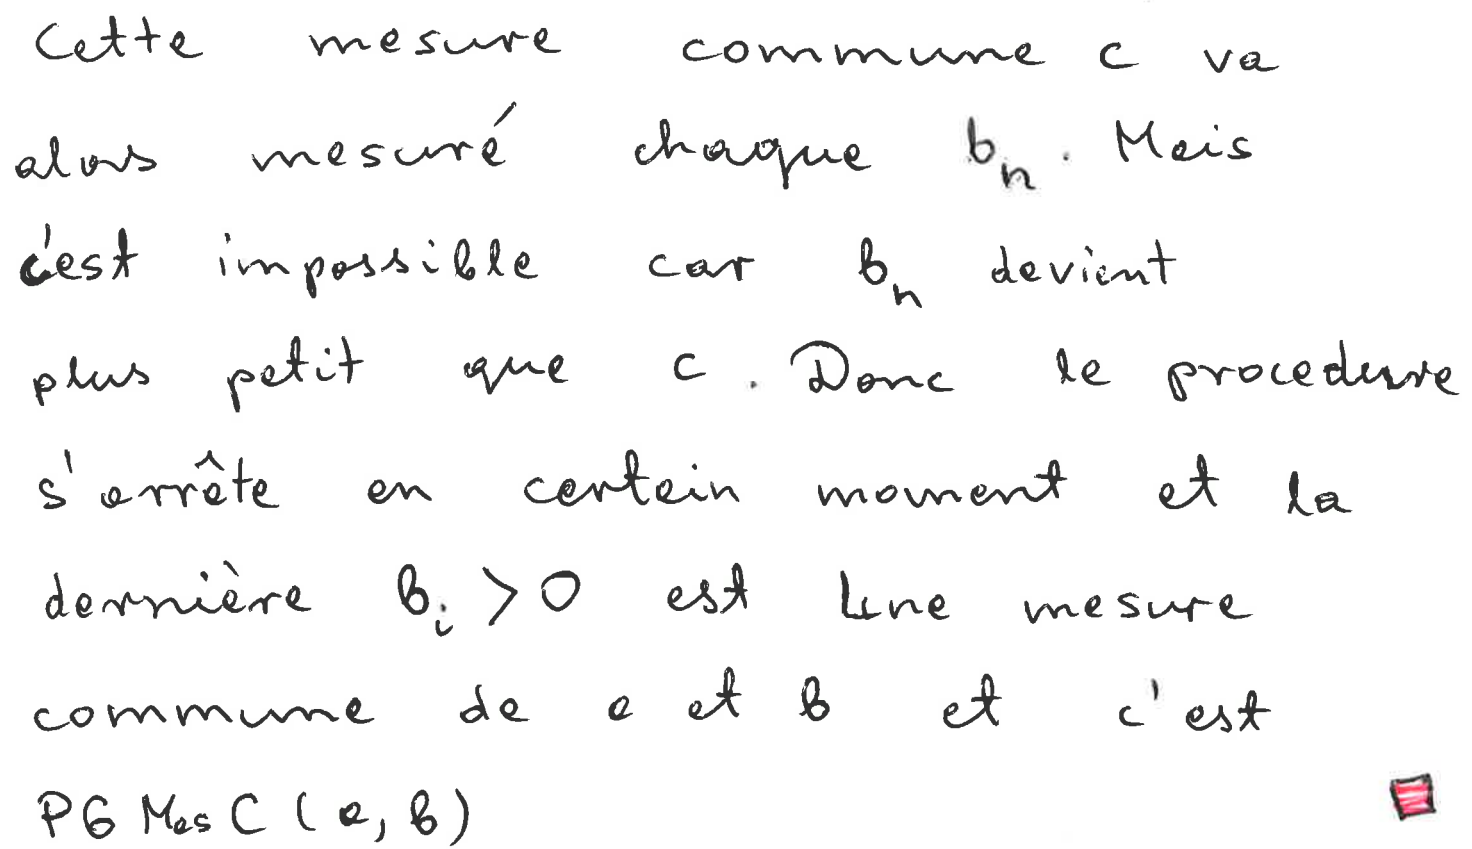 Cette mesure commune c va
alors mesuré chaque bₙ. Mais
c'est impossible car bₙ devient
plus petit que c. Donc le procedure
s'arrête en certain moment et la
dernière bᵢ > 0 est une mesure
commune de a et b et c'est
PG Mes C (a, b)